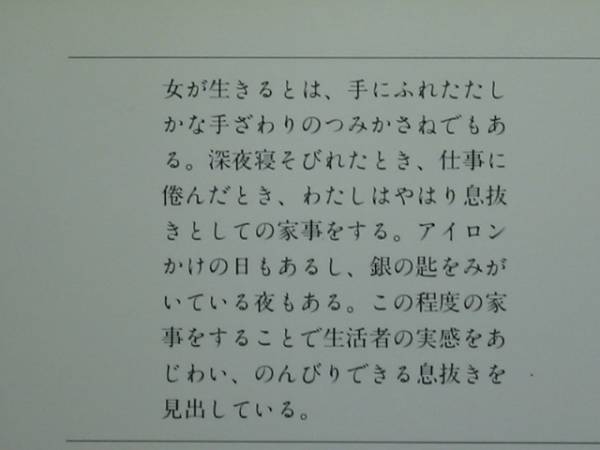 女が生きるとは、手にふれたたし
かな手ざわりのつみかさねでもあ
る。深夜寝そびれたとき、仕事に
倦んだとき、わたしはやはり息抜
きとしての家事をする。アイロン
かけの日もあるし、銀の匙をみが
いている夜もある。この程度の家
事をすることで生活者の実感をあ
じわい、のんびりできる息抜きを
見出している。